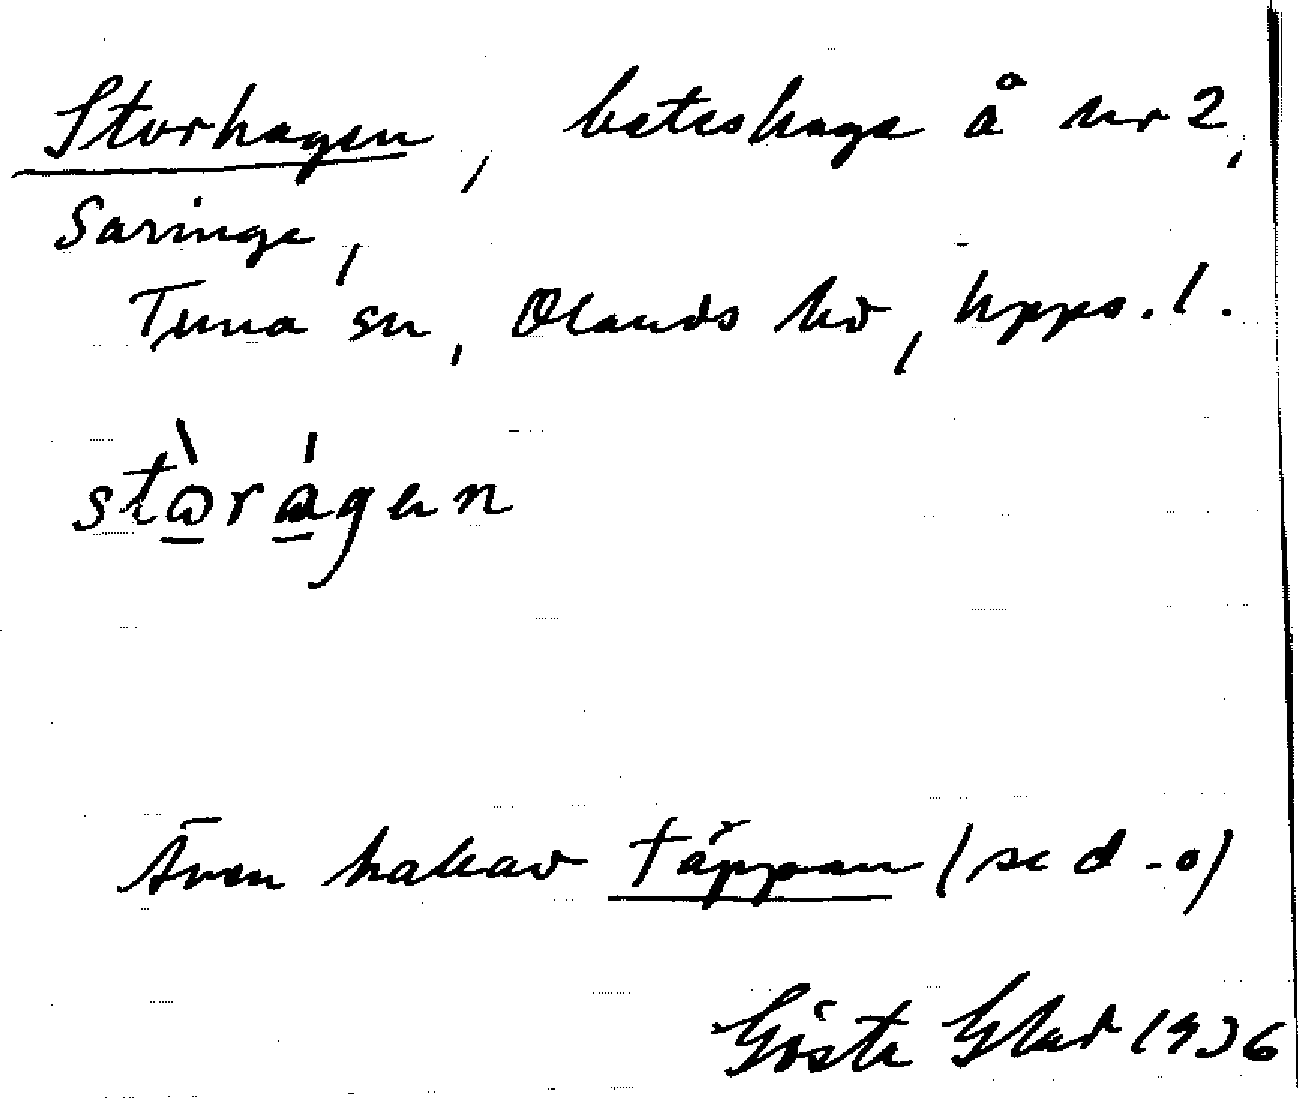 Storhagen, beteshage å nr 2,
Saringe,
Tuna sn, Olands hd, Upps. l.
stò̱rá̱gen
Även kallad Täppan (se d-o)
Gösta Glad 1936